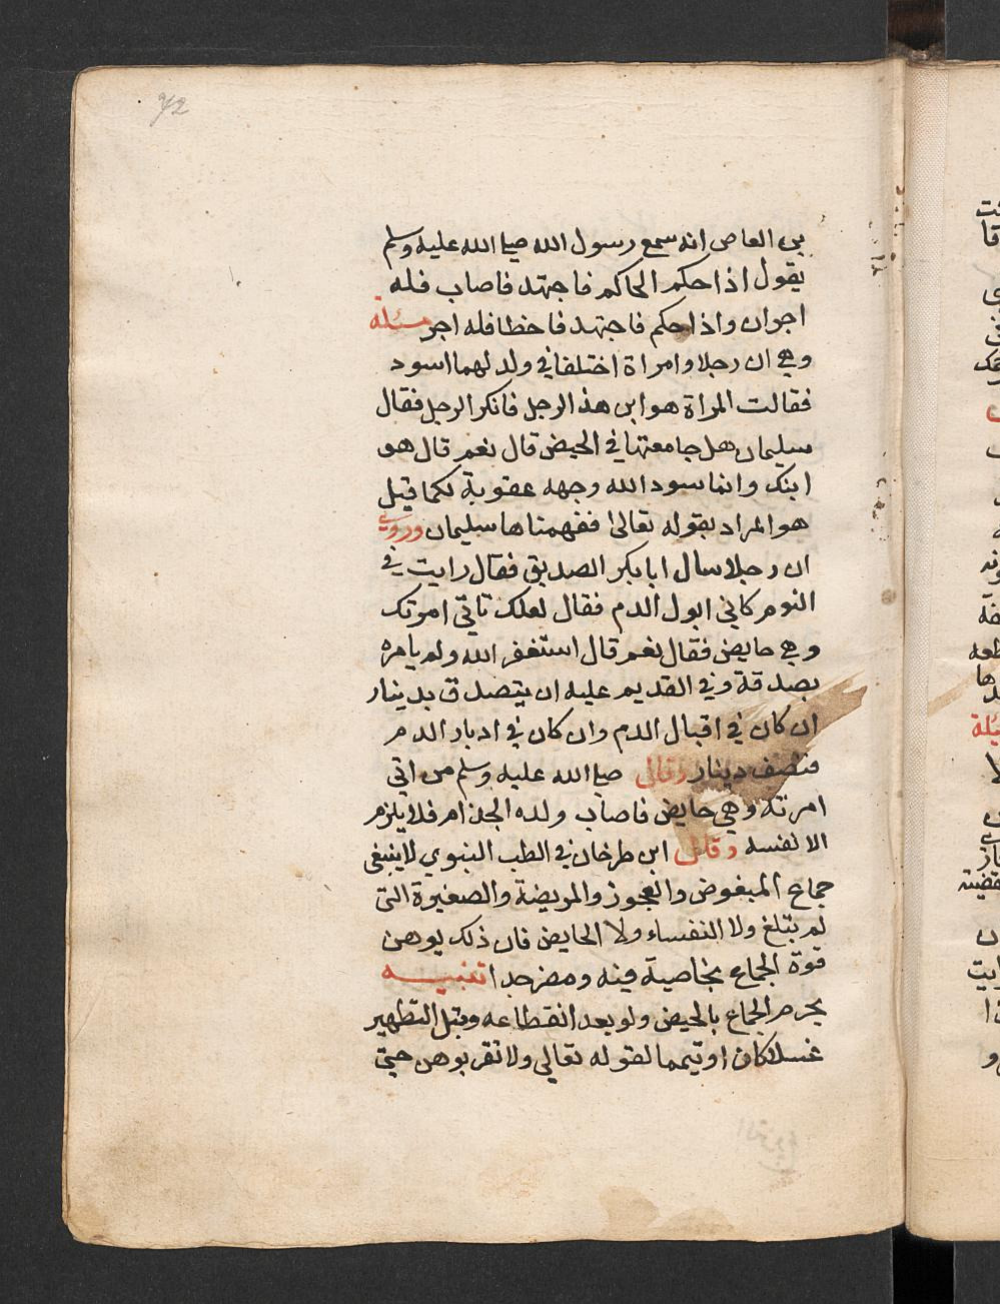 72
بن العاص انه سمع رسول الله صلى الله عليه وسلم
يقول اذا حكم الحاكم فاجتهد فاصاب فله
اجران واذا حكم فاجتهد فاخطا فله اجر مسئلة
وهي ان رجلا وامراة اختلفا في ولد لهما اسود
فقالت المراة هو ابن هذ الرجل فانكر الرجل فقال
سليمان هل جامعتها في الحيض قال نعم قال هو
ابنك وانما سود الله وجهه عقوبة لكما قيل
هو المراد بقوله تعالى ففهمناها سليمان وروي
ان رجلا سال ابا بكر الصديق فقال رايت في
النوم كاني ابول الدم فقال لعلك تاتي امرتك
وهي حايض فقال نعم قال استغفر الله ولم يامره
بصدقة وفي القديم عليه ان يتصدق بدينار
ان كان في اقبال الدم وان كان في ادبار الدم
فنصف دينار وقال صلى الله عليه وسلم من اتى
امرته وهي حايض فاصاب ولده الجذام فلا يلزم
الا نفسه وقال ابن طرخان في الطب النبوي لا ينبغي
جماع المبغوض والعجوز والمريضة والصغيرة التي
لم تبلغ ولا النفساء ولا الحايض فان ذلك يوهن
قوة الجماع بخاصية فيه ومضر جدا تنبيه
يحرم الجماع بالحيض ولو بعد انقطاعه وقبل التطهير
غسلا كان او تيمما لقوله تعالى ولا تقربوهن حتى